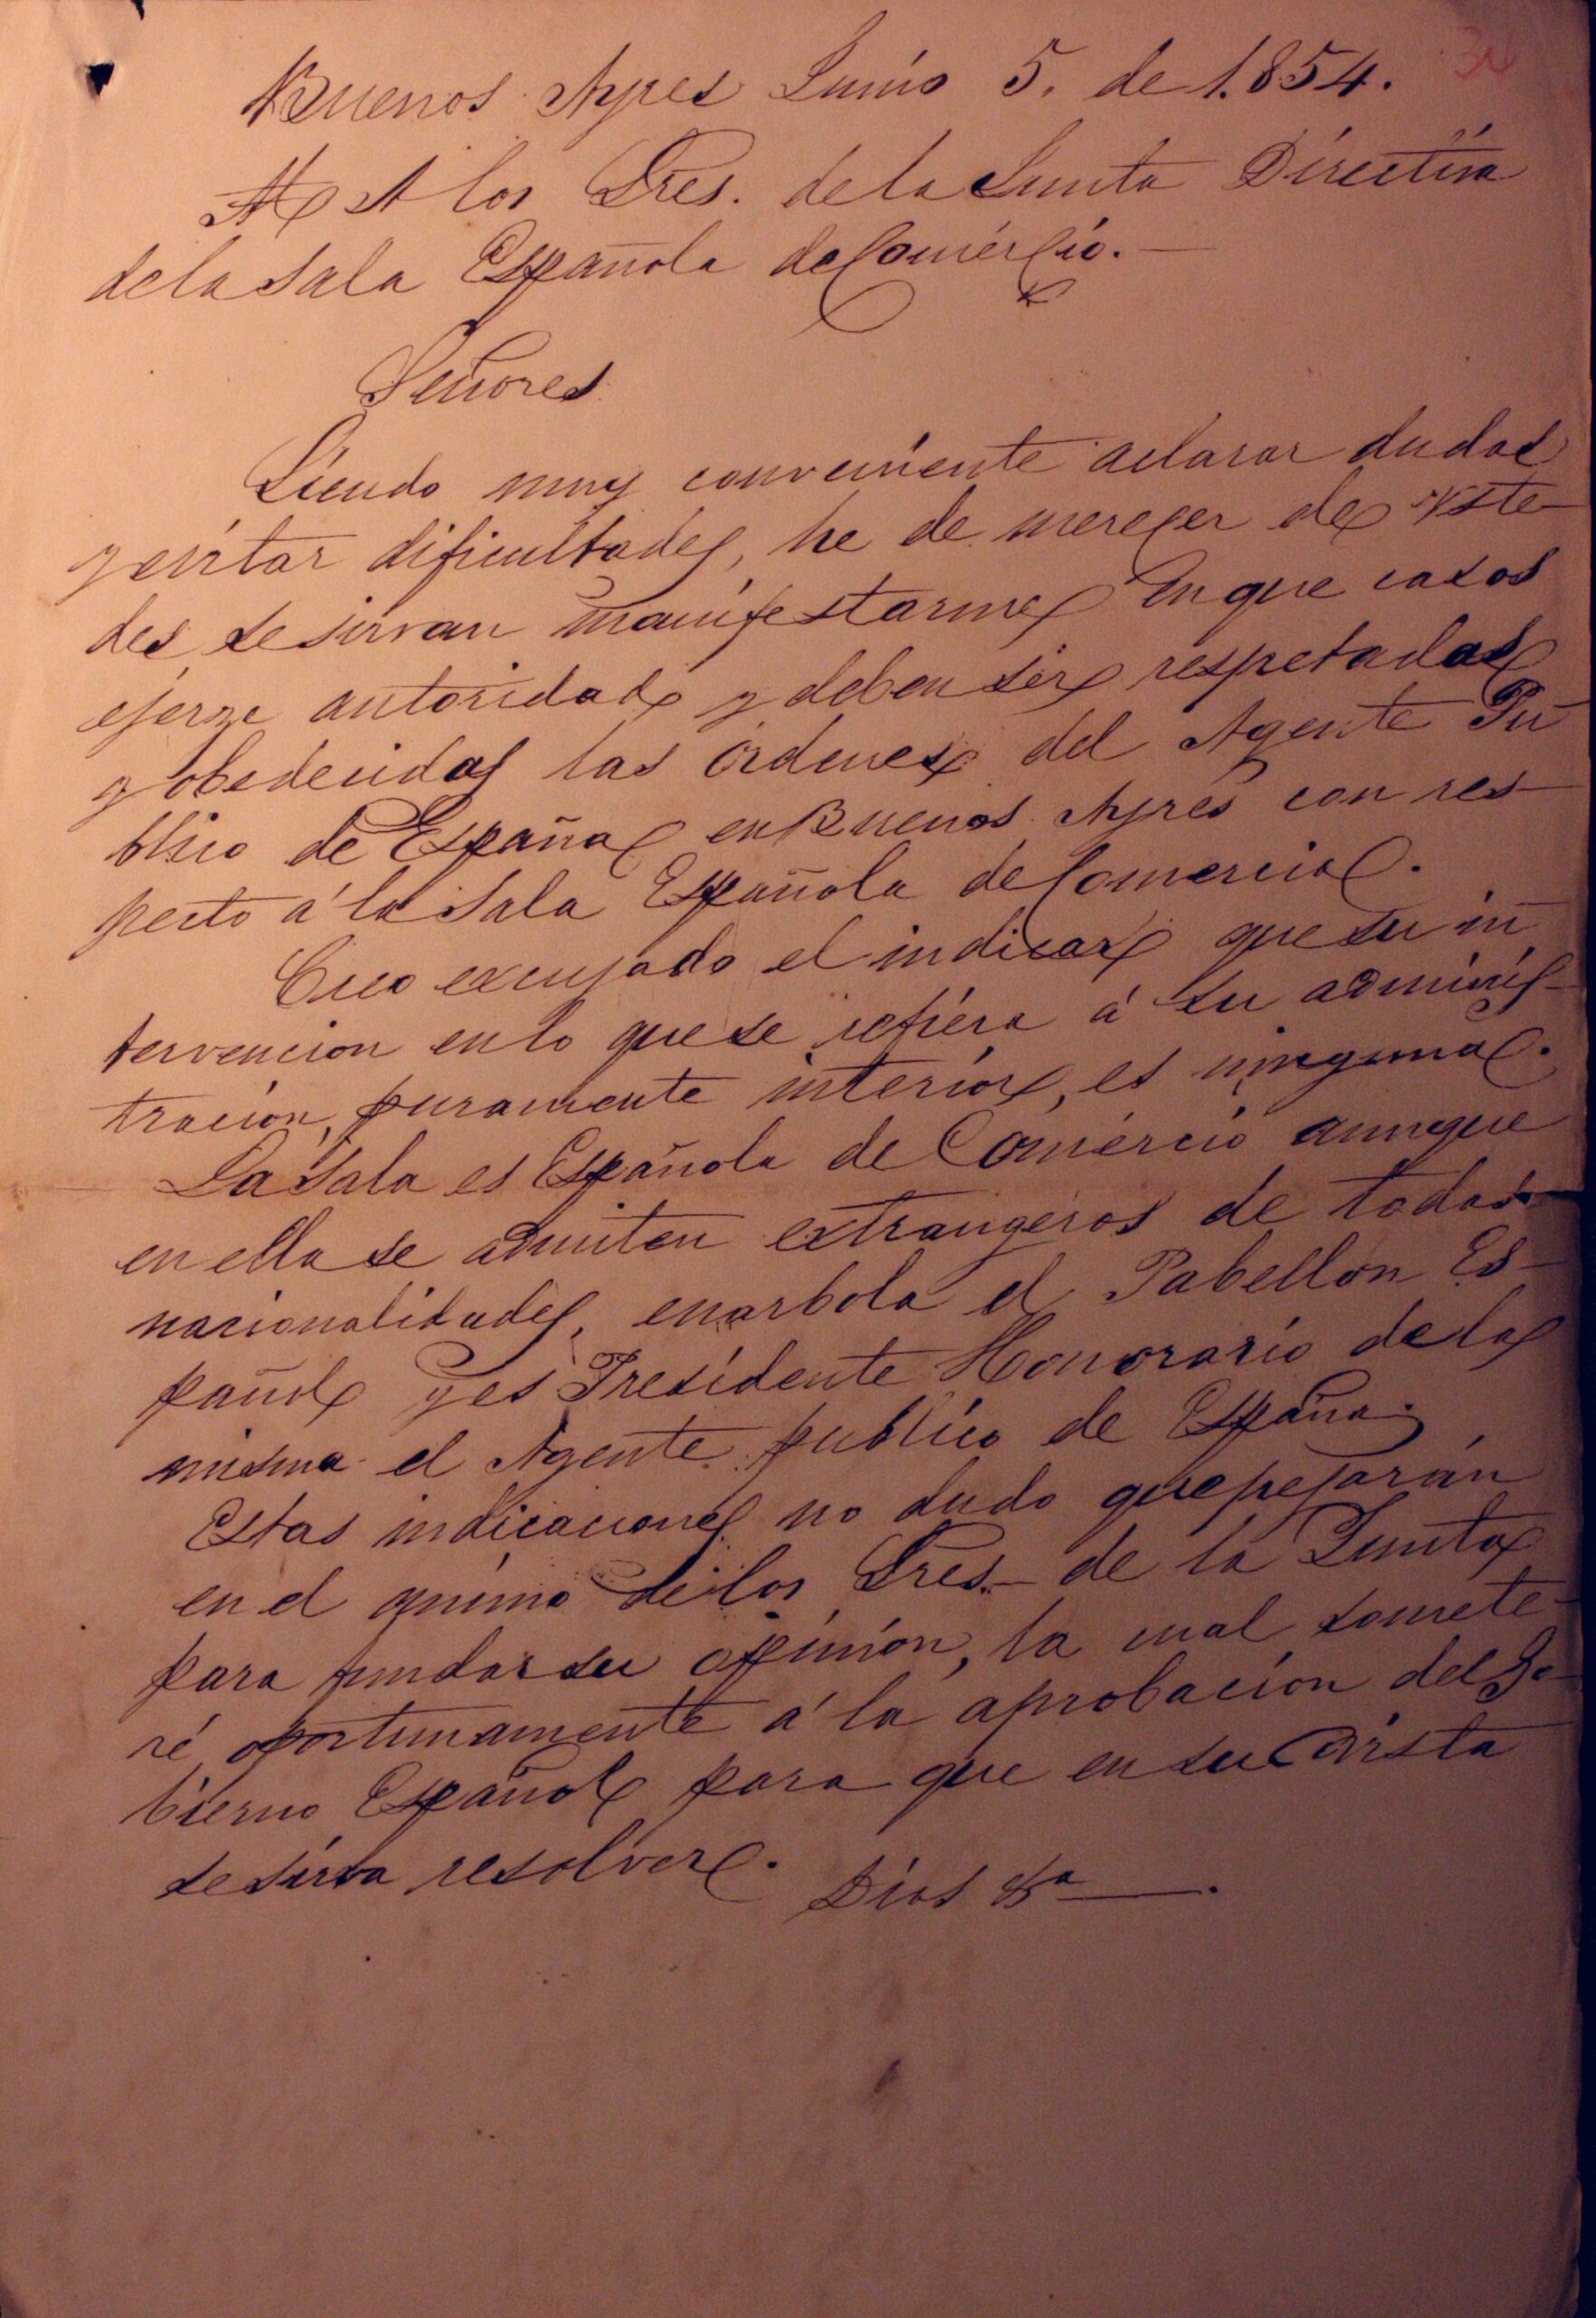 34
Buenos Ayres Junio 5. de 1.854.
A los Sres. de la Junta Directiva
de la Sala Española de Comércio.—
Señores
Siendo muy conveniente aclarar dudas
y evitar dificultades, he de mereçer de Uste-
des se sirvan manifestarme en que casos
ejerze autoridad y deben ser respetadas
y obedecidas las órdenes del Agente Pú-
blico de España en Buenos Ayres con res-
pecto á la Sala Española de Comercio.
Creo excusado el indicar que su in-
tervencion en lo que se refiera á su adminis-
tracion, puramente interior, es ninguna.
La Sala es Española de Comércio aunque
en ella se admiten extrangeros de todas
nacionalidades, enarbola el Pabellon Es-
pañol y es Presidente Honorario de la
misma el Agente publico de España.
Estas indicaciones no dudo que pesarán
en el ánimo de los Sres. de la Junta
para fundar su opinión, la cual somete-
ré oportunamente á la aprobacion del Go-
bierno Español para que en su vista
se sirva resolver.
Dios &a —.